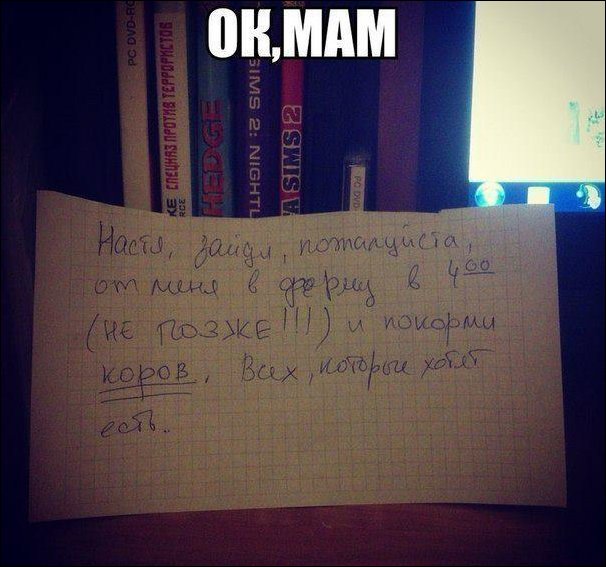 ОК,МАМ
PC DVD-RO
СПЕЦНАЗ ПРОТИВ ТЕРРОРИСТОВ
HEDGE
SIMS 2: NIGHTL
SIMS 2
PC DVD
Настя, зайди, пожалуйста,
от меня в ферму в 4 00
(НЕ ПОЗЖЕ!!!) и покорми
коров. Всех, которые хотят
есть.